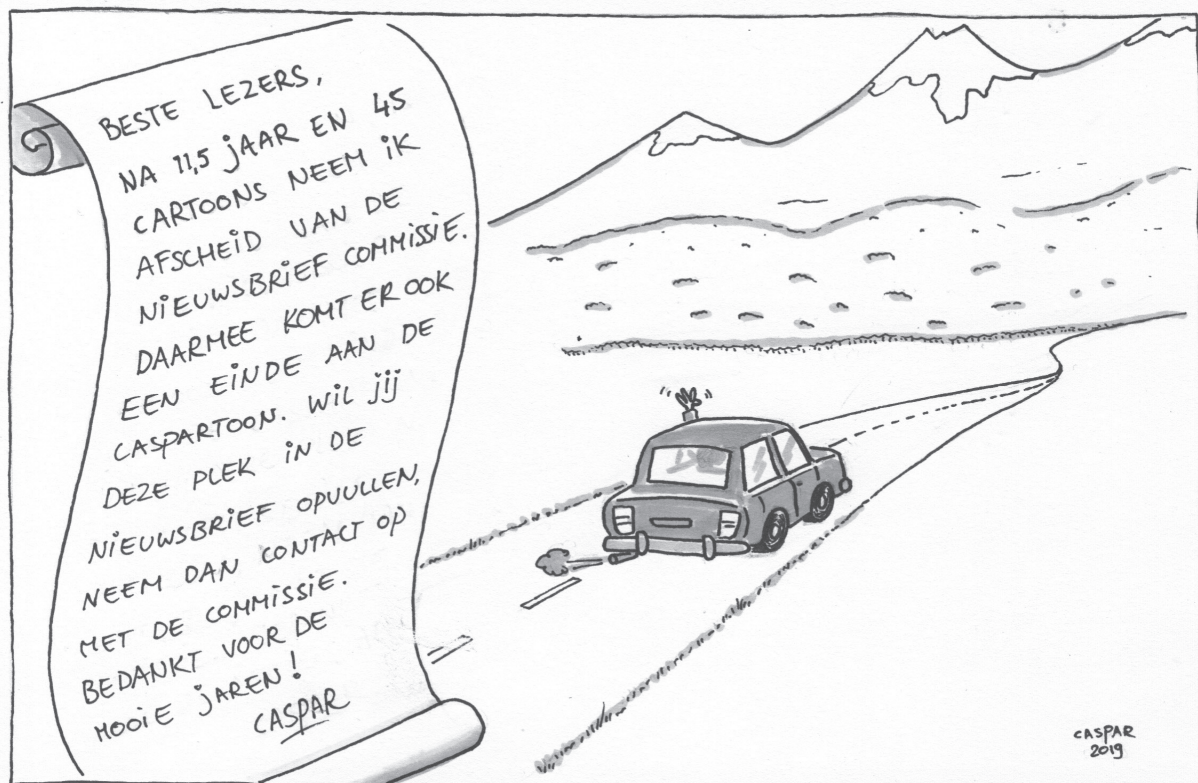 BESTE LEZERS,
NA 11,5 JAAR EN 45
CARTOONS NEEM IK
AFSCHEID VAN DE
NIEUWSBRIEF COMMISSIE.
DAARMEE KOMT ER OOK
EEN EINDE AAN DE
CASPARTOON. WIL JIJ
DEZE PLEK IN DE
NIEUWSBRIEF OPVULLEN,
NEEM DAN CONTACT OP
MET DE COMMISSIE.
BEDANKT VOOR DE
MOOIE JAREN!
CASPAR
CASPAR
2019